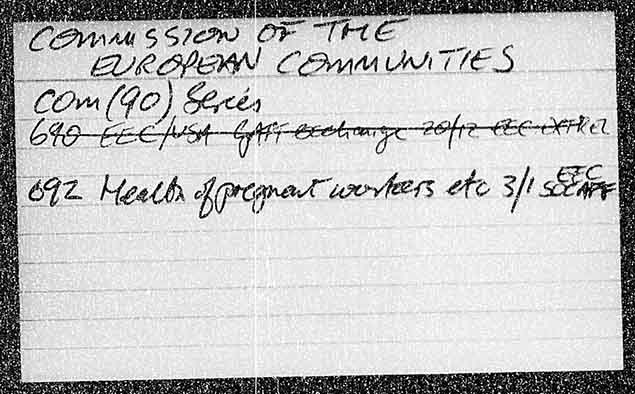 COMMISSION OF THE
EUROPEAN COMMUNITIES
COM(90) Series
690 EEC/USA GATT exchange 20/12 EEC EXTREL
692 Health of pregnant workers etc 3/1 EEC SOCAFF